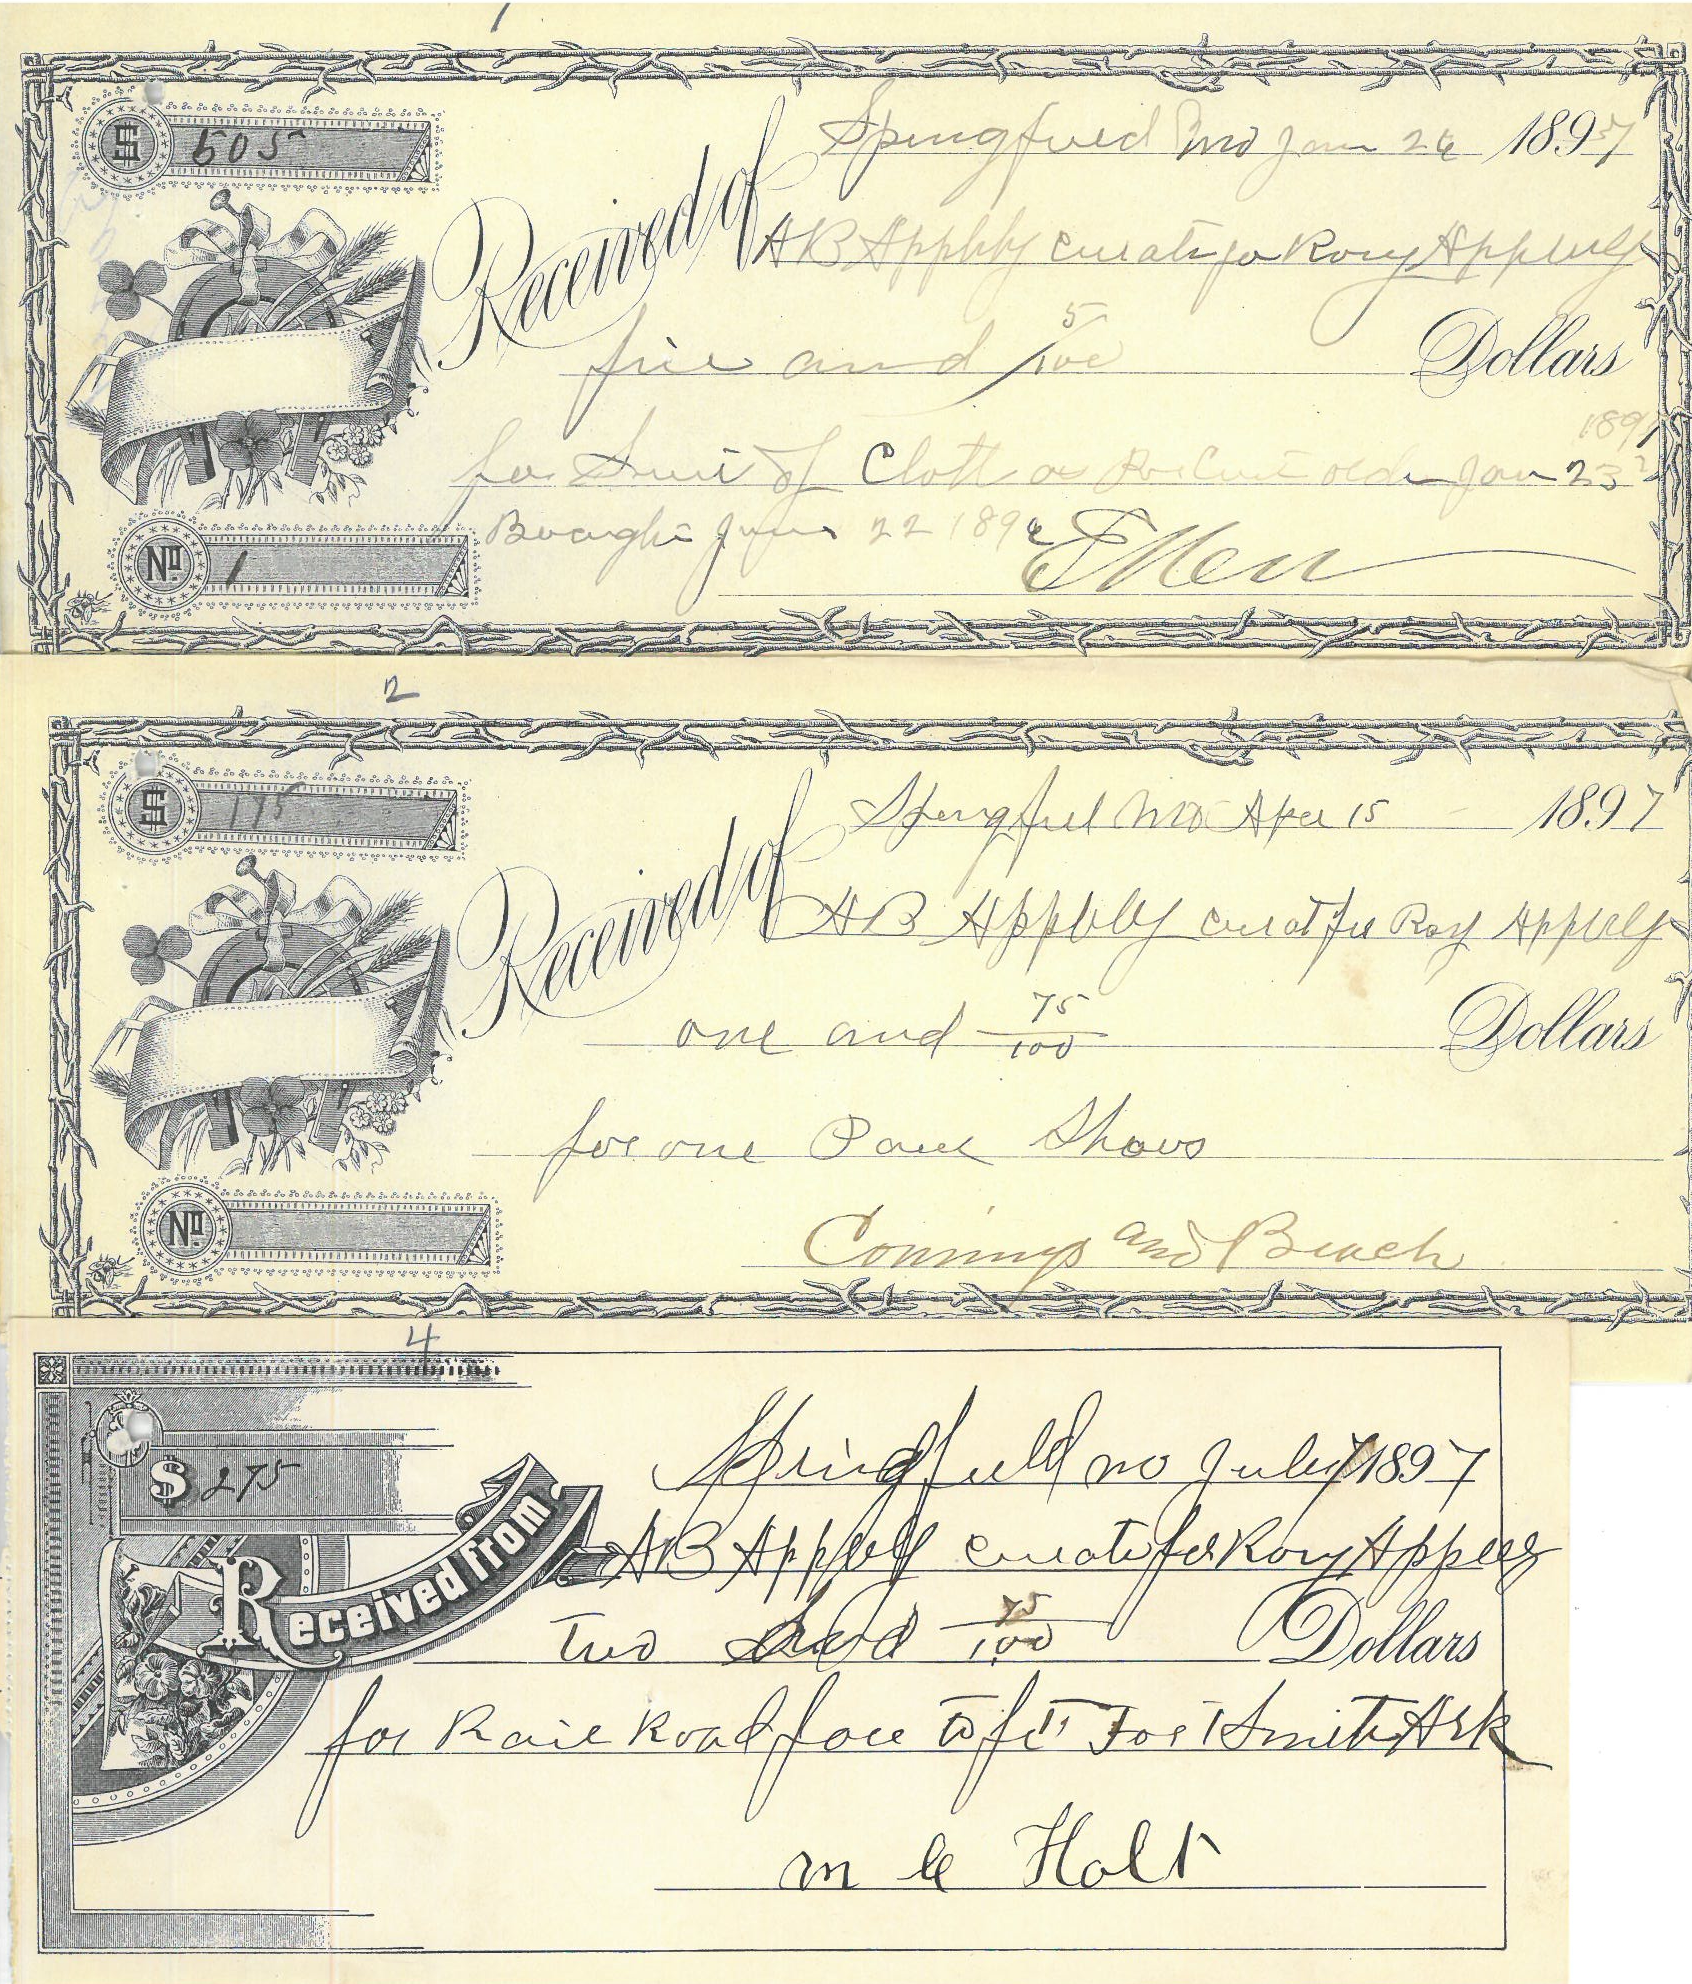 1
$ 505
Springfield Mo Jan 26 1897
Received of AB Appleby curat for Roy Appleby
five and 5/100 Dollars
1897
for Suit of Cloth as Per Cort order Jan 23
Bought Jan 22 189
No. 1
2
$ 175
Springfield Mo Apr 15 1897
Received of AB Appleby curat for Roy Appleby
one and 75/100 Dollars
for one Pair Shous
No.
Comings and Beach
4
$ 275
Springfield mo July 1897
Received from AB Appleby curat for Roy Appleby
Two and 75/100 Dollars
for Rail Road fare to Fort Smith Ark
Holt